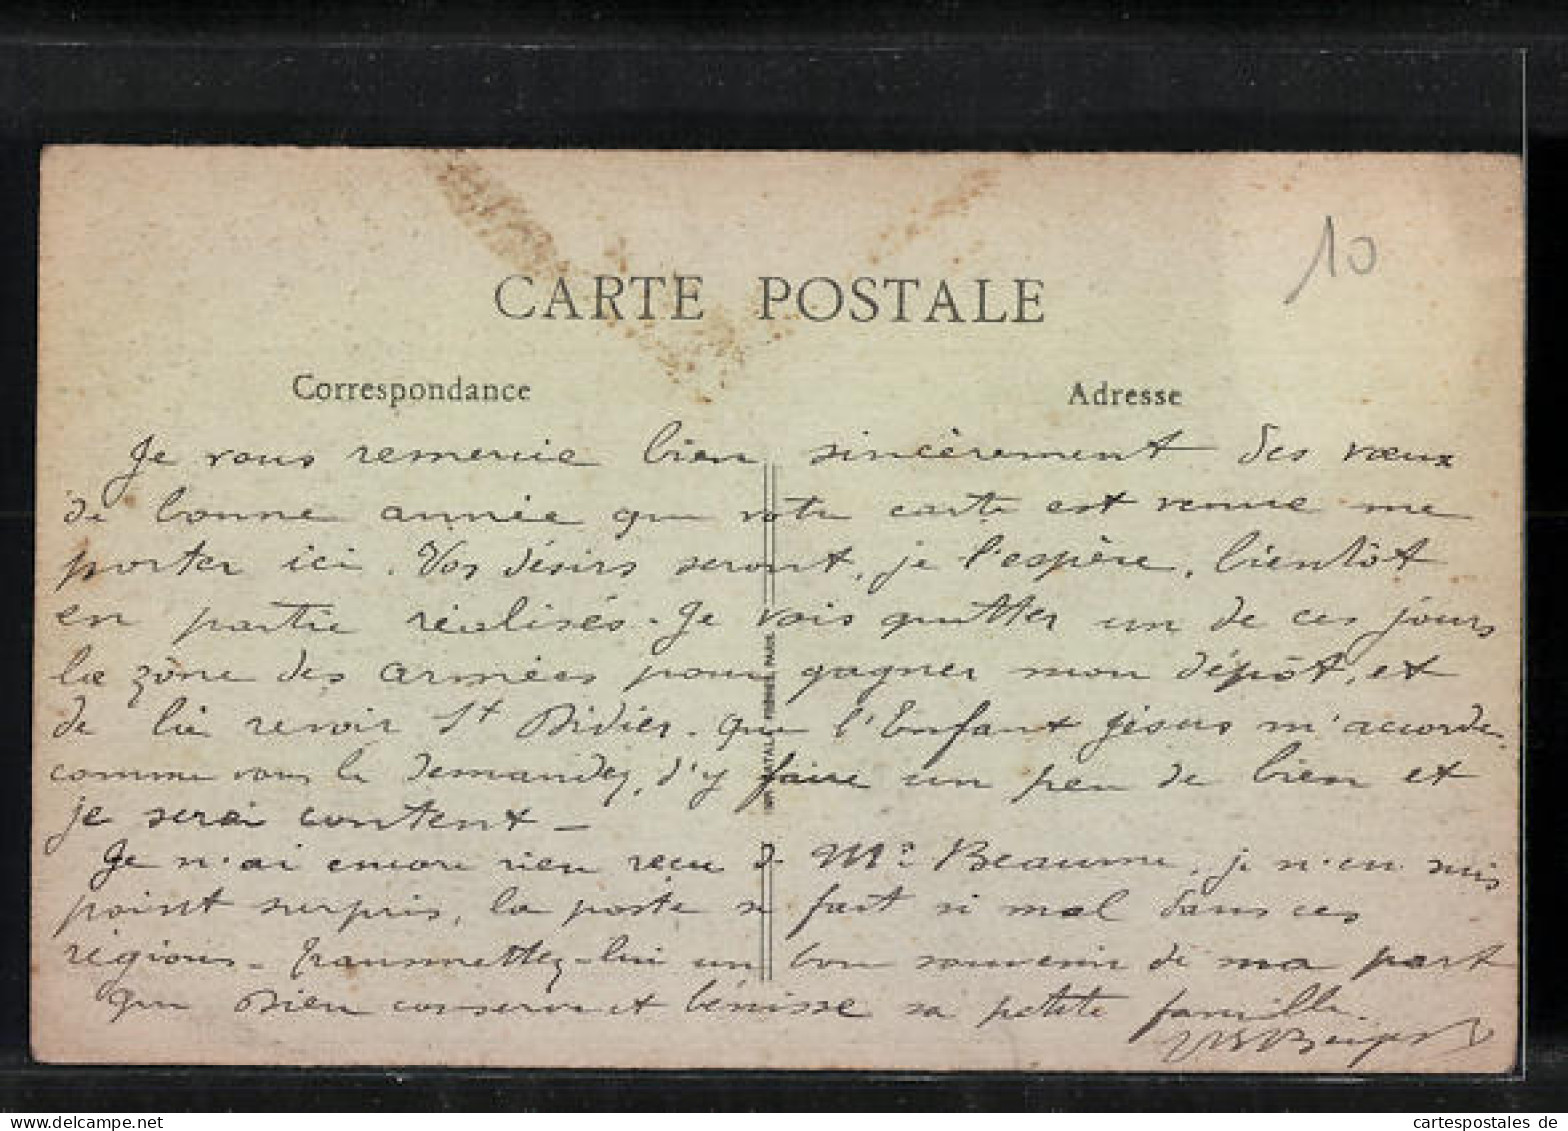 10
CARTE POSTALE
Correspondance
Adresse
Je vous remercie bien sincèrement des vœux
de bonne année que votre carte est venue me
porter ici. Vos désirs seront, je l'espère, bientôt
en partie réalisés. Je vais quitter un de ces jours
la zone des armées pour gagner mon dépôt, et
de là revoir St Didier. Que l'Enfant Jésus m'accorde,
comme vous le demandez, d'y faire un peu de bien et
je serai content _
Je n'ai encore rien reçu de Mr Beaume, je n'en suis
point surpris, la poste se fait si mal dans ces
régions _ transmettez-lui un bon souvenir de ma part
que Dieu conserve et bénisse sa petite famille.
PARIS
cartespostales de